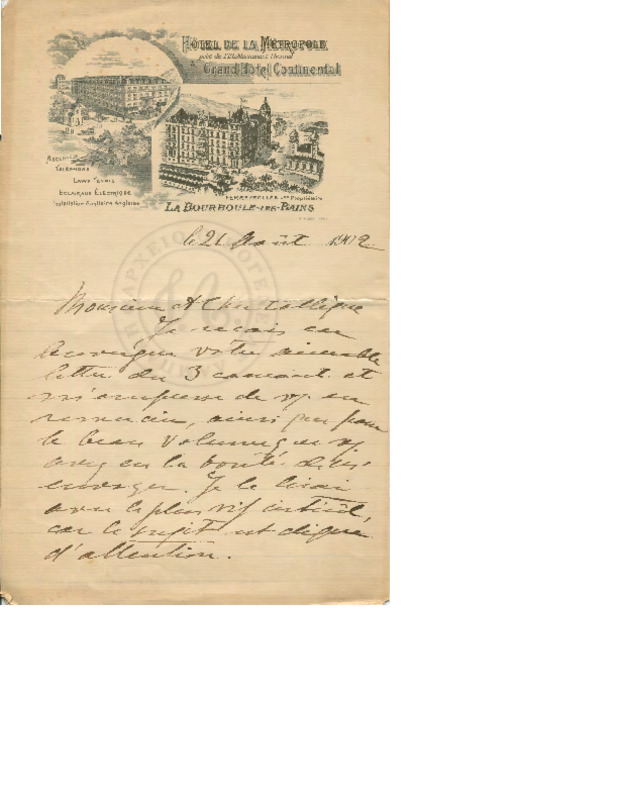 HÔTEL DE LA MÉTROPOLE
près de l'Etablissement Thermal
& Grand Hôtel Continental
TÉLÉPHONE
LAWN-TENNIS
ECLAIRAGE ÉLECTRIQUE
Installation Sanitaire Anglaise
Propriétaire
LA BOURBOULE-LES-BAINS
le 21 Août 1902
Monsieur et Cher Collègue
Je reçois en
votre aimable
lettre du 3 courant et
m'empresse de vs en
remercier, ainsi que pour
le beau volume que vs
avez eu la bonté de m'
envoyer. Je le lirai
avec le plus vif intérêt,
car le sujet est digne
d'attention.